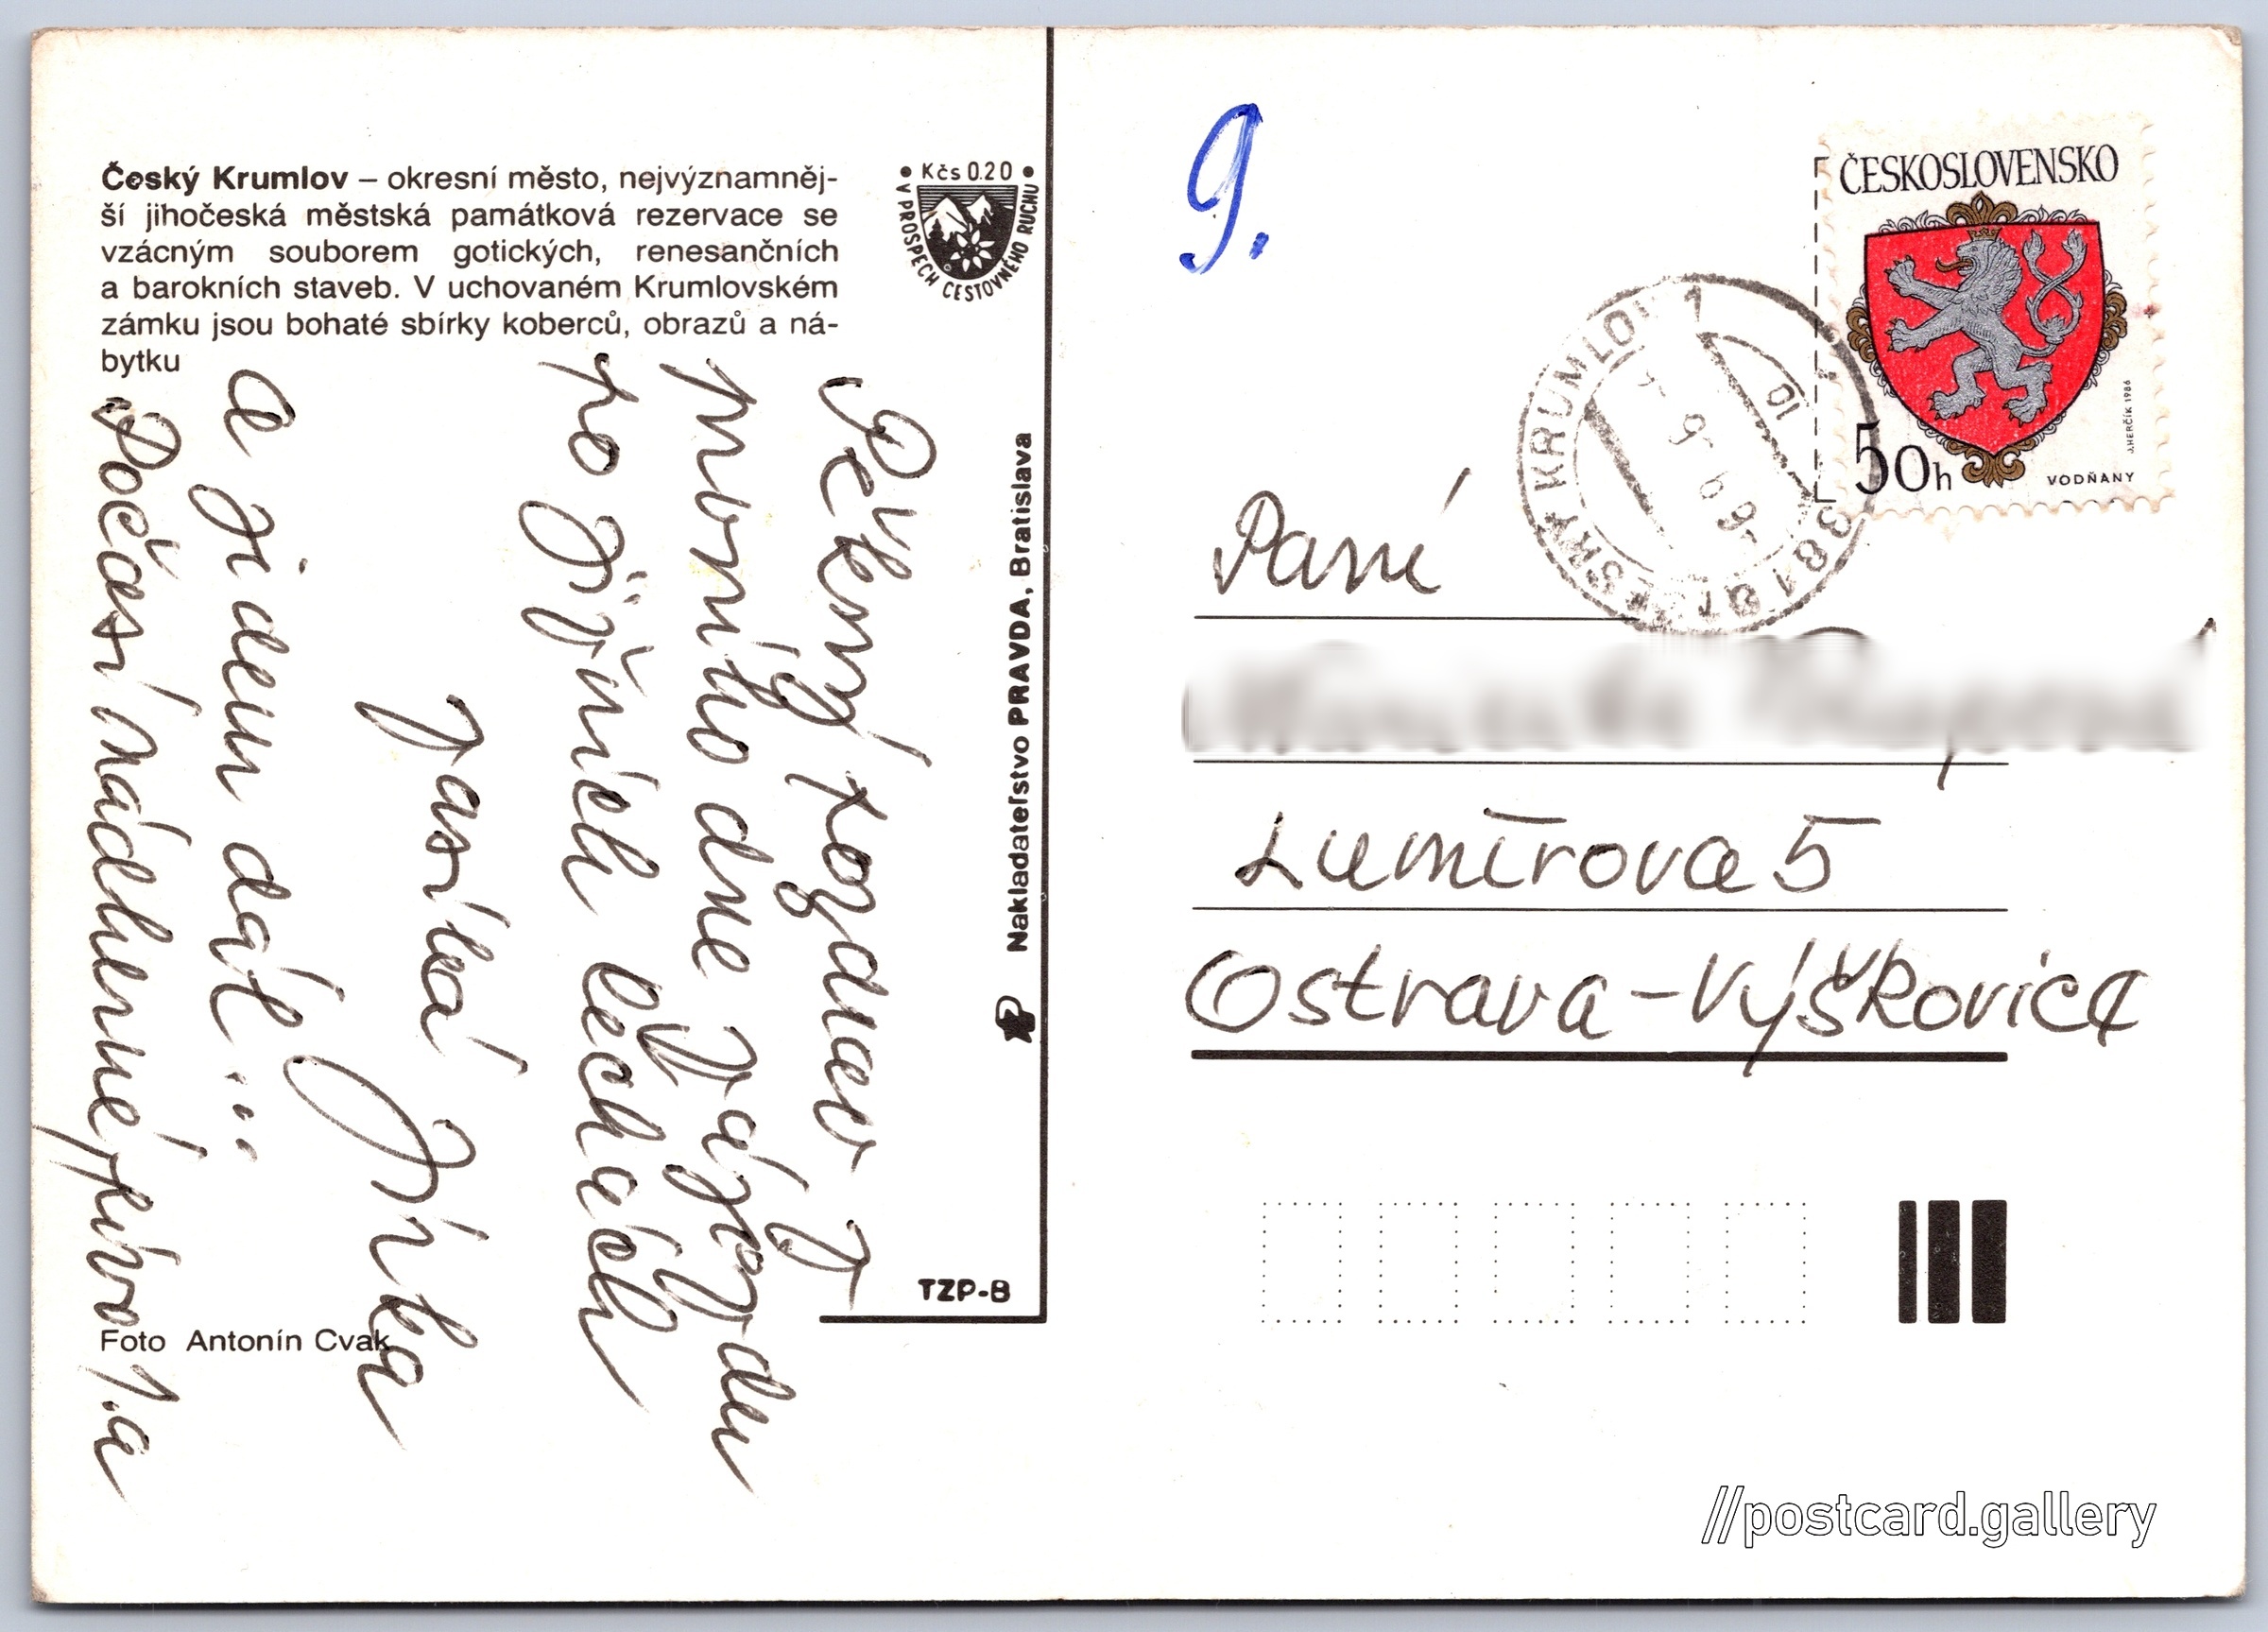 Český Krumlov – okresní město, nejvýznamněj-
ší jihočeská městská památková rezervace se
vzácným souborem gotických, renesančních
a barokních staveb. V uchovaném Krumlovském
zámku jsou bohaté sbírky koberců, obrazů a ná-
bytku
• Kčs 0.20 •
V PROSPECH CESTOVNÉHO RUCHU
Pěkný pozdrav z
prvního dne zájezdu
po Jižních Čechách
zasílá Jirka
Počasí nádherné, pivo 1.a
a jedem dál ...
Foto Antonín Cvak
Nakladateľstvo PRAVDA, Bratislava
TZP-B
9.
ČESKOSLOVENSKO
50h
VODŇANY
J.HERČÍK 1986
ČESKÝ KRUMLOV 1
381 01
Paní
Lumírova 5
Ostrava-Výškovice
//postcard.gallery